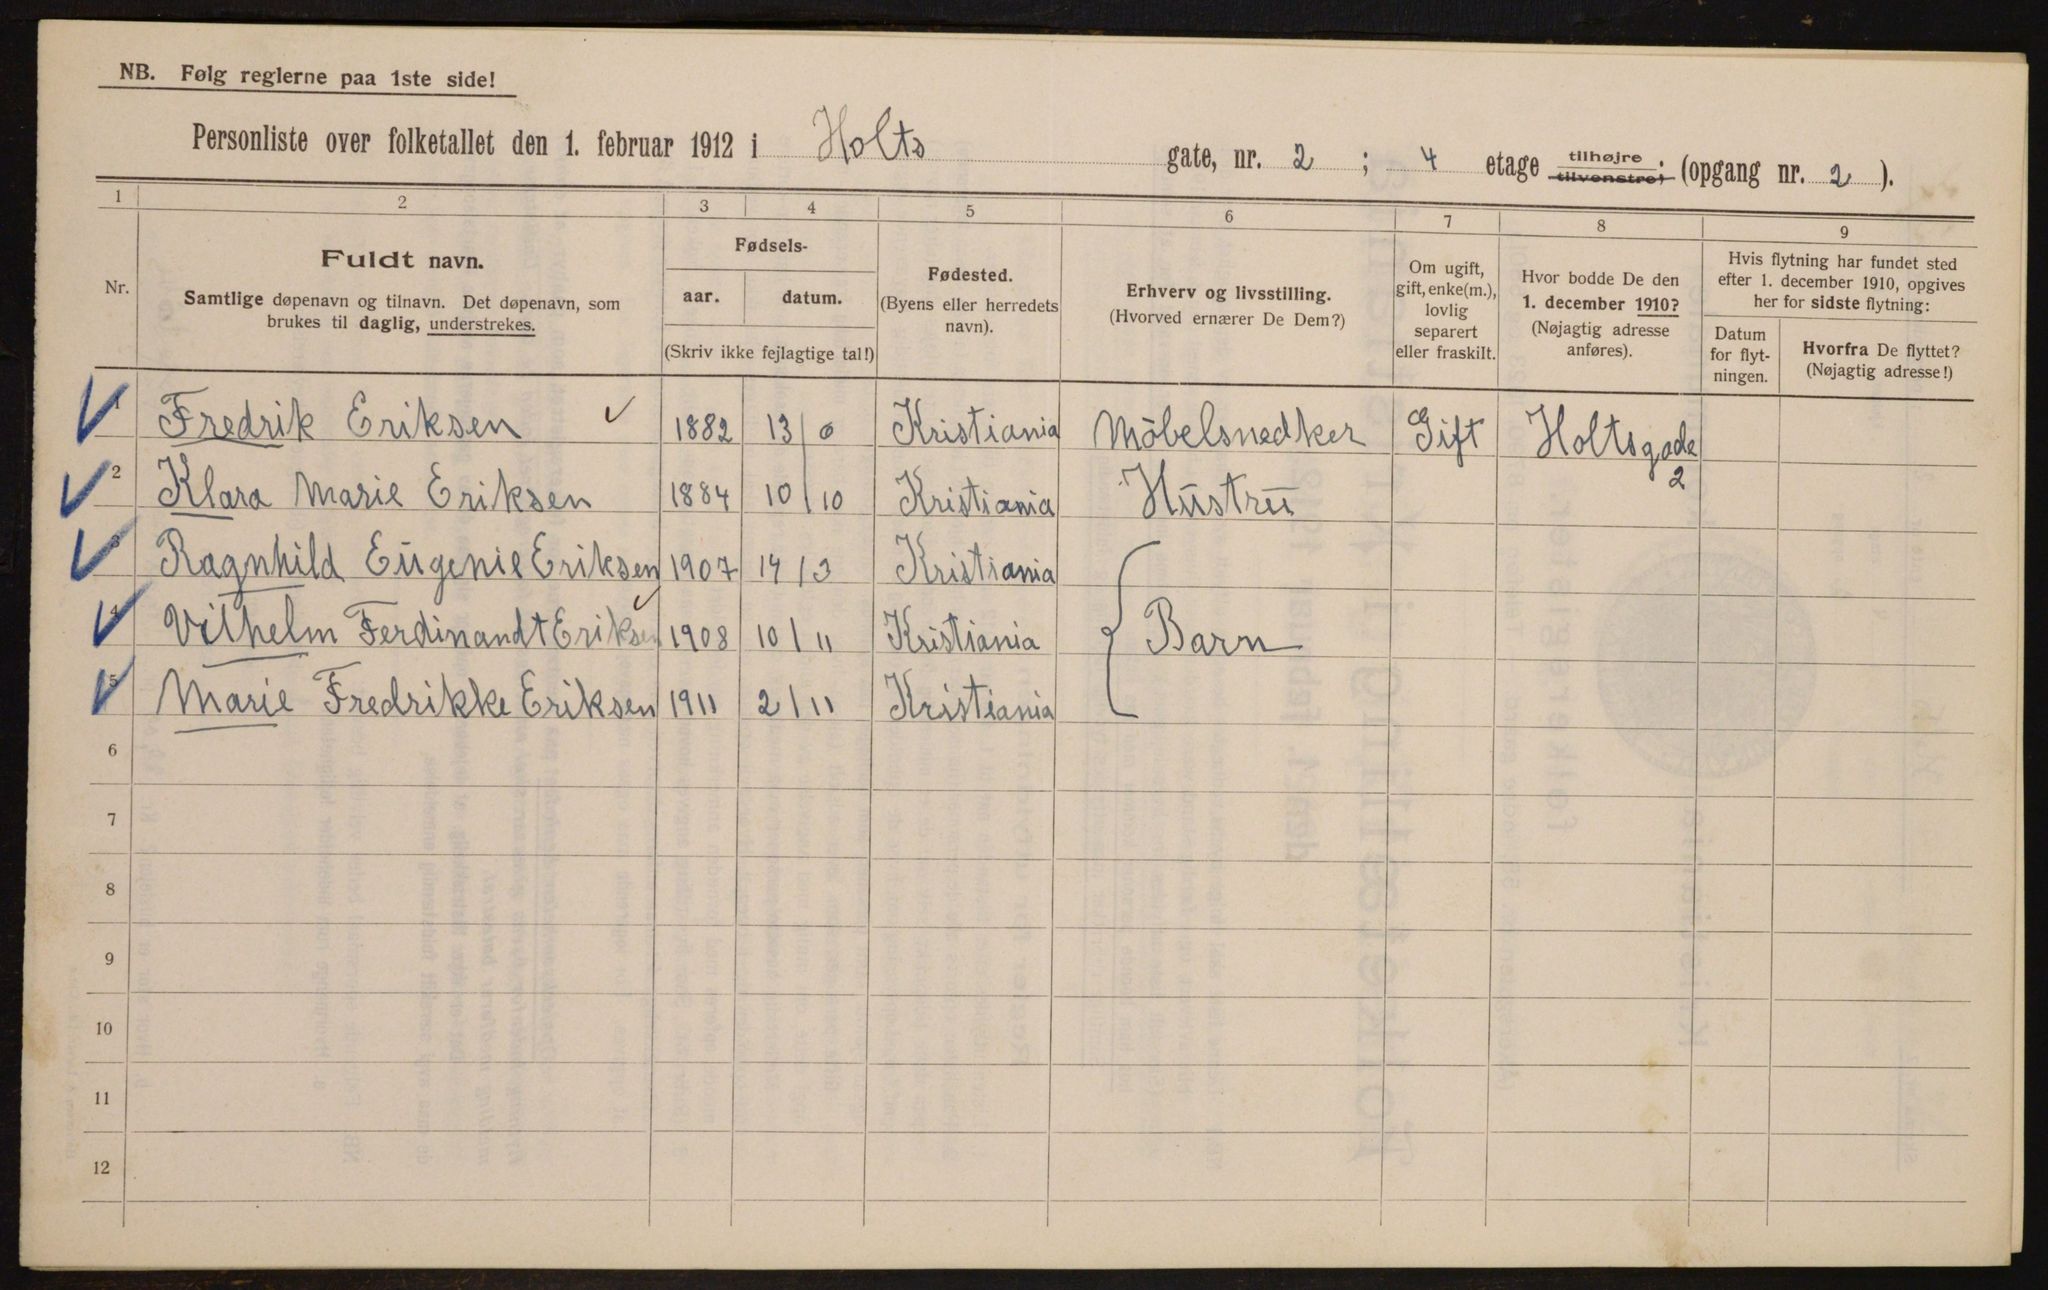 NB. Følg reglerne paa 1ste side!
Personliste over folketallet den 1. februar 1912 i Holts gate, nr. 2 ; 4 etage tilhøjre. tilvenstre, (opgang nr. 2 ).
1 2 3 4 5 6 7 8 9
Nr.
Fuldt navn.
Samtlige døpenavn og tilnavn. Det døpenavn, som
brukes til daglig, understrekes.
Fødsels-
aar. datum.
(Skriv ikke fejlagtige tal!)
Fødested.
(Byens eller herredets
navn).
Erhverv og livsstilling.
(Hvorved ernærer De Dem?)
Om ugift,
gift, enke(m.),
lovlig
separert
eller fraskilt.
Hvor bodde De den
1. december 1910?
(Nøjagtig adresse
anføres).
Hvis flytning har fundet sted
efter 1. december 1910, opgives
her for sidste flytning:
Datum
for flyt-
ningen.
Hvorfra De flyttet?
(Nøjagtig adresse!)
1 Fredrik Eriksen 1882 13/ Kristiania Möbelsnedker Gift Holtsgade
2
2 Klara Marie Eriksen 1884 10/10 Kristiania Hustru
3 Ragnhild Eugenie Eriksen 1907 14/3 Kristiania
4 Vilhelm Ferdinandt Eriksen 1908 10/11 Kristiania Barn
5 Marie Fredrikke Eriksen 1911 2/11 Kristiania
6
7
8
9
10
11
12